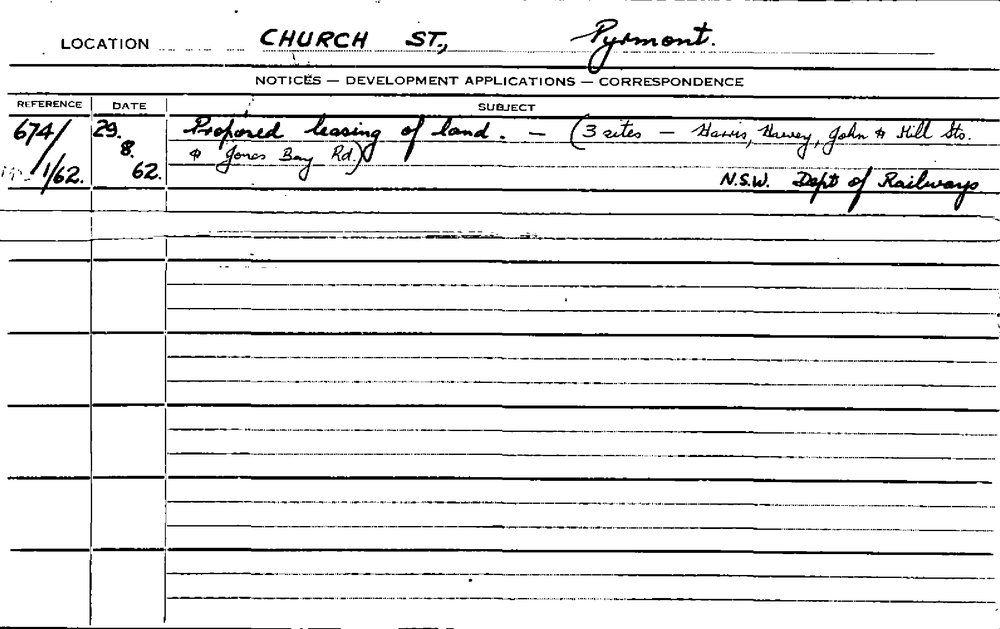 LOCATION CHURCH ST., Pyrmont.
NOTICES — DEVELOPMENT APPLICATIONS — CORRESPONDENCE
REFERENCE DATE SUBJECT
674/ 29. Proposed leasing of land. — (3 sites — Harris, Harvey, John & Hill Sts.
8. & Jones Bay Rd.)
1/62. 62. N.S.W. Dept of Railways